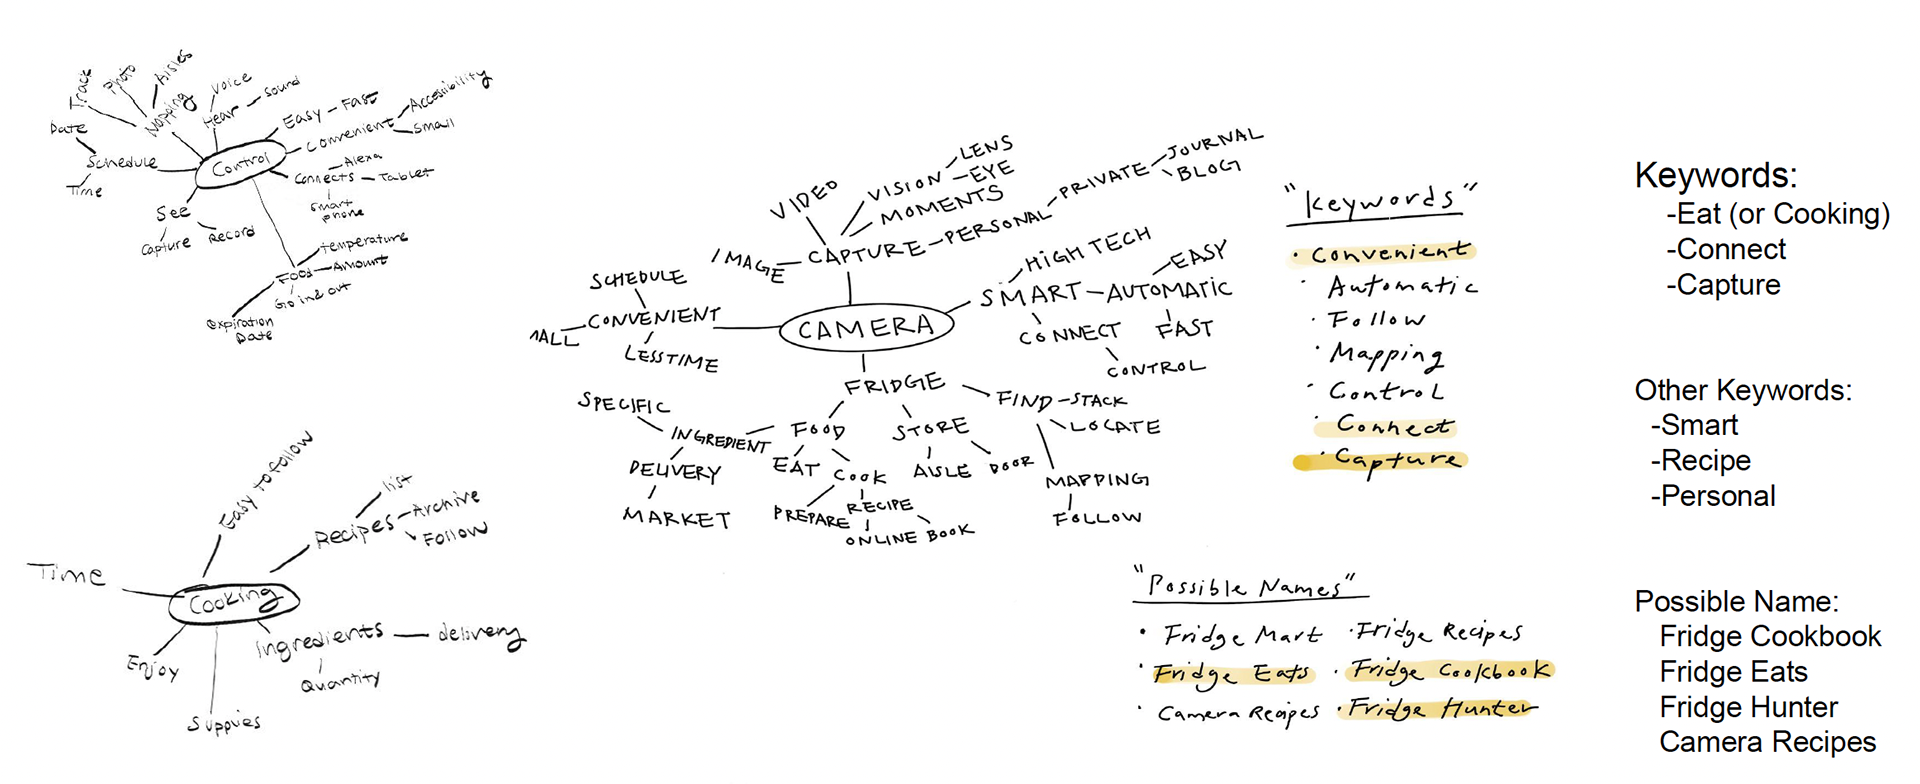 Track
Photo
Aisles
Mapping
Voice
Hear
Sound
Easy - Fast
Convenient
Accessibility
Small
Date
Schedule
Time
Control
Alexa
Connects - Tablet
Smart
phone
See
Capture
Record
Temperature
Food - Amount
Going out
expiration
Date
Easy to follow
list
Recipes - Archive
Follow
Time
Cooking
Ingredients - delivery
Quantity
Enjoy
Supplies
VIDEO
VISION - EYE
LENS
MOMENTS
IMAGE - CAPTURE - PERSONAL - PRIVATE - JOURNAL
BLOG
SCHEDULE
MALL - CONVENIENT
LESS TIME
CAMERA
HIGH TECH
SMART - AUTOMATIC
EASY
FAST
CONNECT
CONTROL
FRIDGE
FIND - STACK
LOCATE
MAPPING
FOLLOW
SPECIFIC
INGREDIENT
FOOD
STORE
DELIVERY
MARKET
EAT
COOK
AISLE
DOOR
PREPARE
RECIPE
ONLINE BOOK
"Keywords"
· Convenient
· Automatic
· Follow
· Mapping
· Control
· Connect
· Capture
"Possible Names"
· Fridge Mart · Fridge Recipes
· Fridge Eats · Fridge Cookbook
· Camera Recipes · Fridge Hunter
Keywords:
-Eat (or Cooking)
-Connect
-Capture
Other Keywords:
-Smart
-Recipe
-Personal
Possible Name:
Fridge Cookbook
Fridge Eats
Fridge Hunter
Camera Recipes